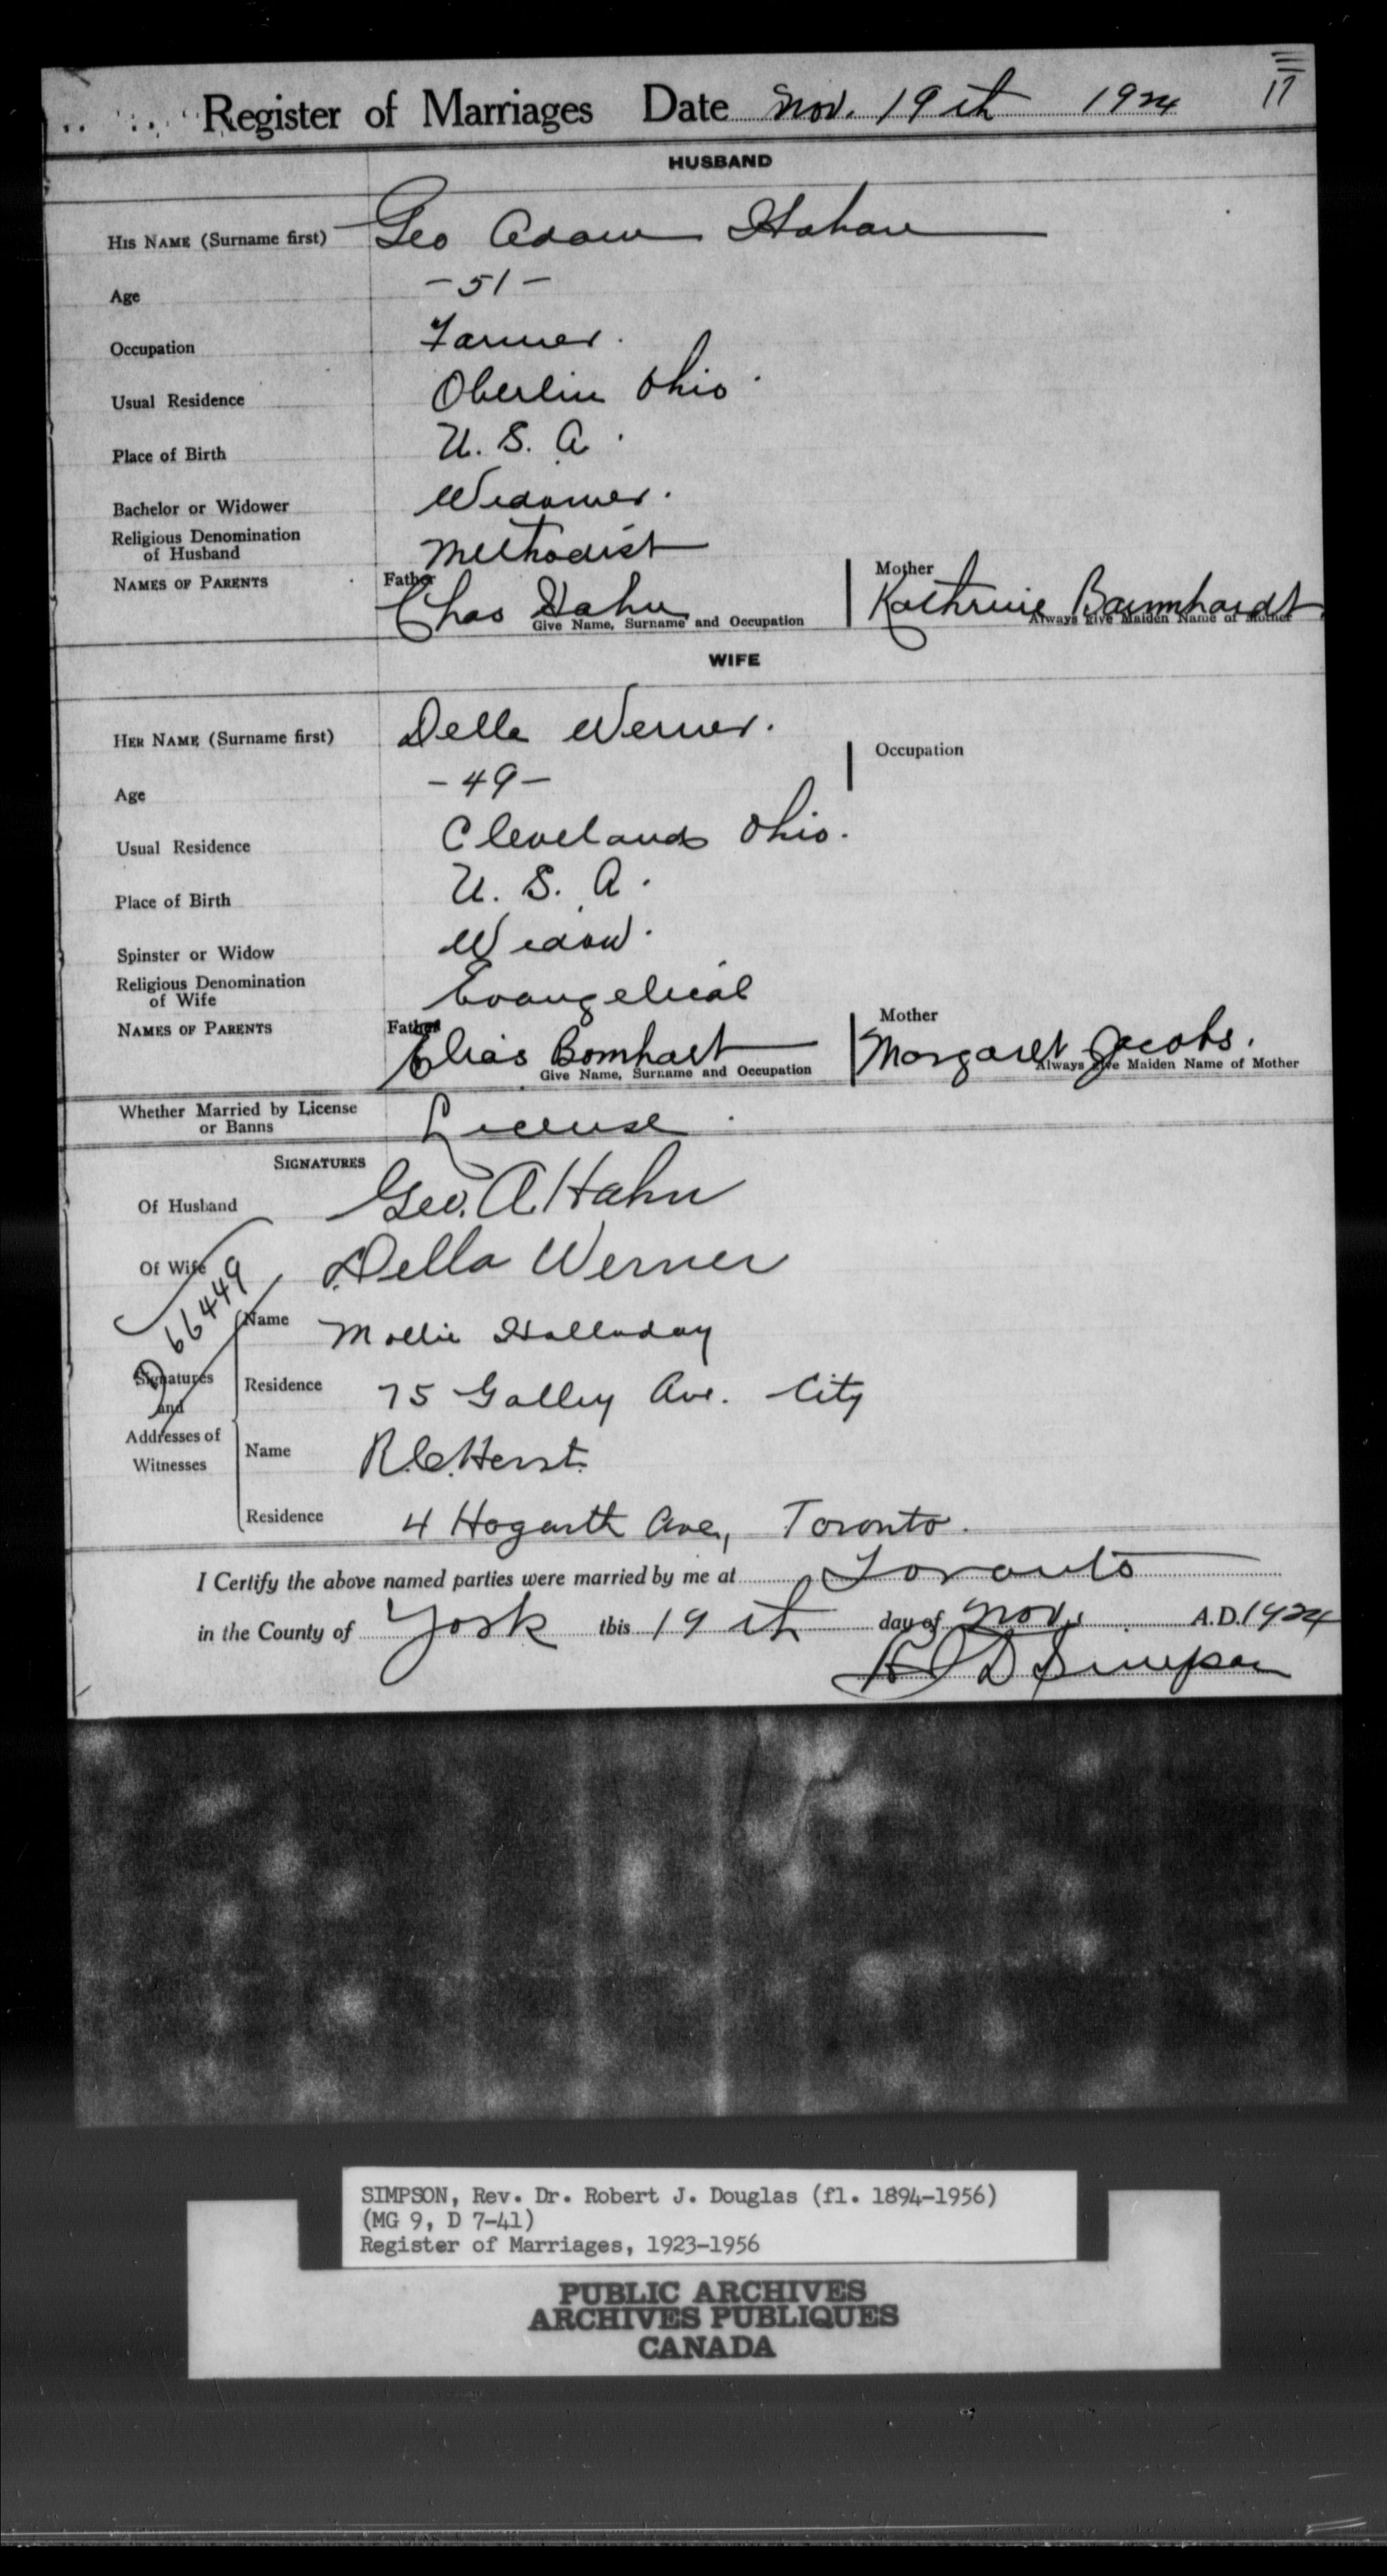 Register of Marriages Date Nov. 19th 1924 17
HUSBAND
HIS NAME (Surname first) Geo Adam Hahn
Age - 51 -
Occupation Farmer.
Usual Residence Oberlin Ohio.
Place of Birth U. S. A.
Bachelor or Widower Widower.
Religious Denomination of Husband Methodist
NAMES OF PARENTS Father Chas Hahn Mother Kathrine Baumhardt
Give Name, Surname and Occupation Always give Maiden Name of Mother
WIFE
HER NAME (Surname first) Della Werner. Occupation
Age - 49 -
Usual Residence Cleveland Ohio.
Place of Birth U. S. A.
Spinster or Widow Widow.
Religious Denomination of Wife Evangelical
NAMES OF PARENTS Father Elias Bomhart Mother Margaret Jacobs.
Give Name, Surname and Occupation Always give Maiden Name of Mother
Whether Married by License or Banns License
SIGNATURES
Of Husband Geo. A. Hahn
Of Wife Della Werner
D 66449
Signatures and Addresses of Witnesses
Name Mollie Halladay
Residence 75 Galley Ave. City
Name R.C. Herst.
Residence 4 Hogarth Ave, Toronto.
I Certify the above named parties were married by me at Toronto
in the County of York this 19th day of Nov. A.D. 1924
R J D Simpson
SIMPSON, Rev. Dr. Robert J. Douglas (fl. 1894-1956)
(MG 9, D 7-41)
Register of Marriages, 1923-1956
PUBLIC ARCHIVES
ARCHIVES PUBLIQUES
CANADA